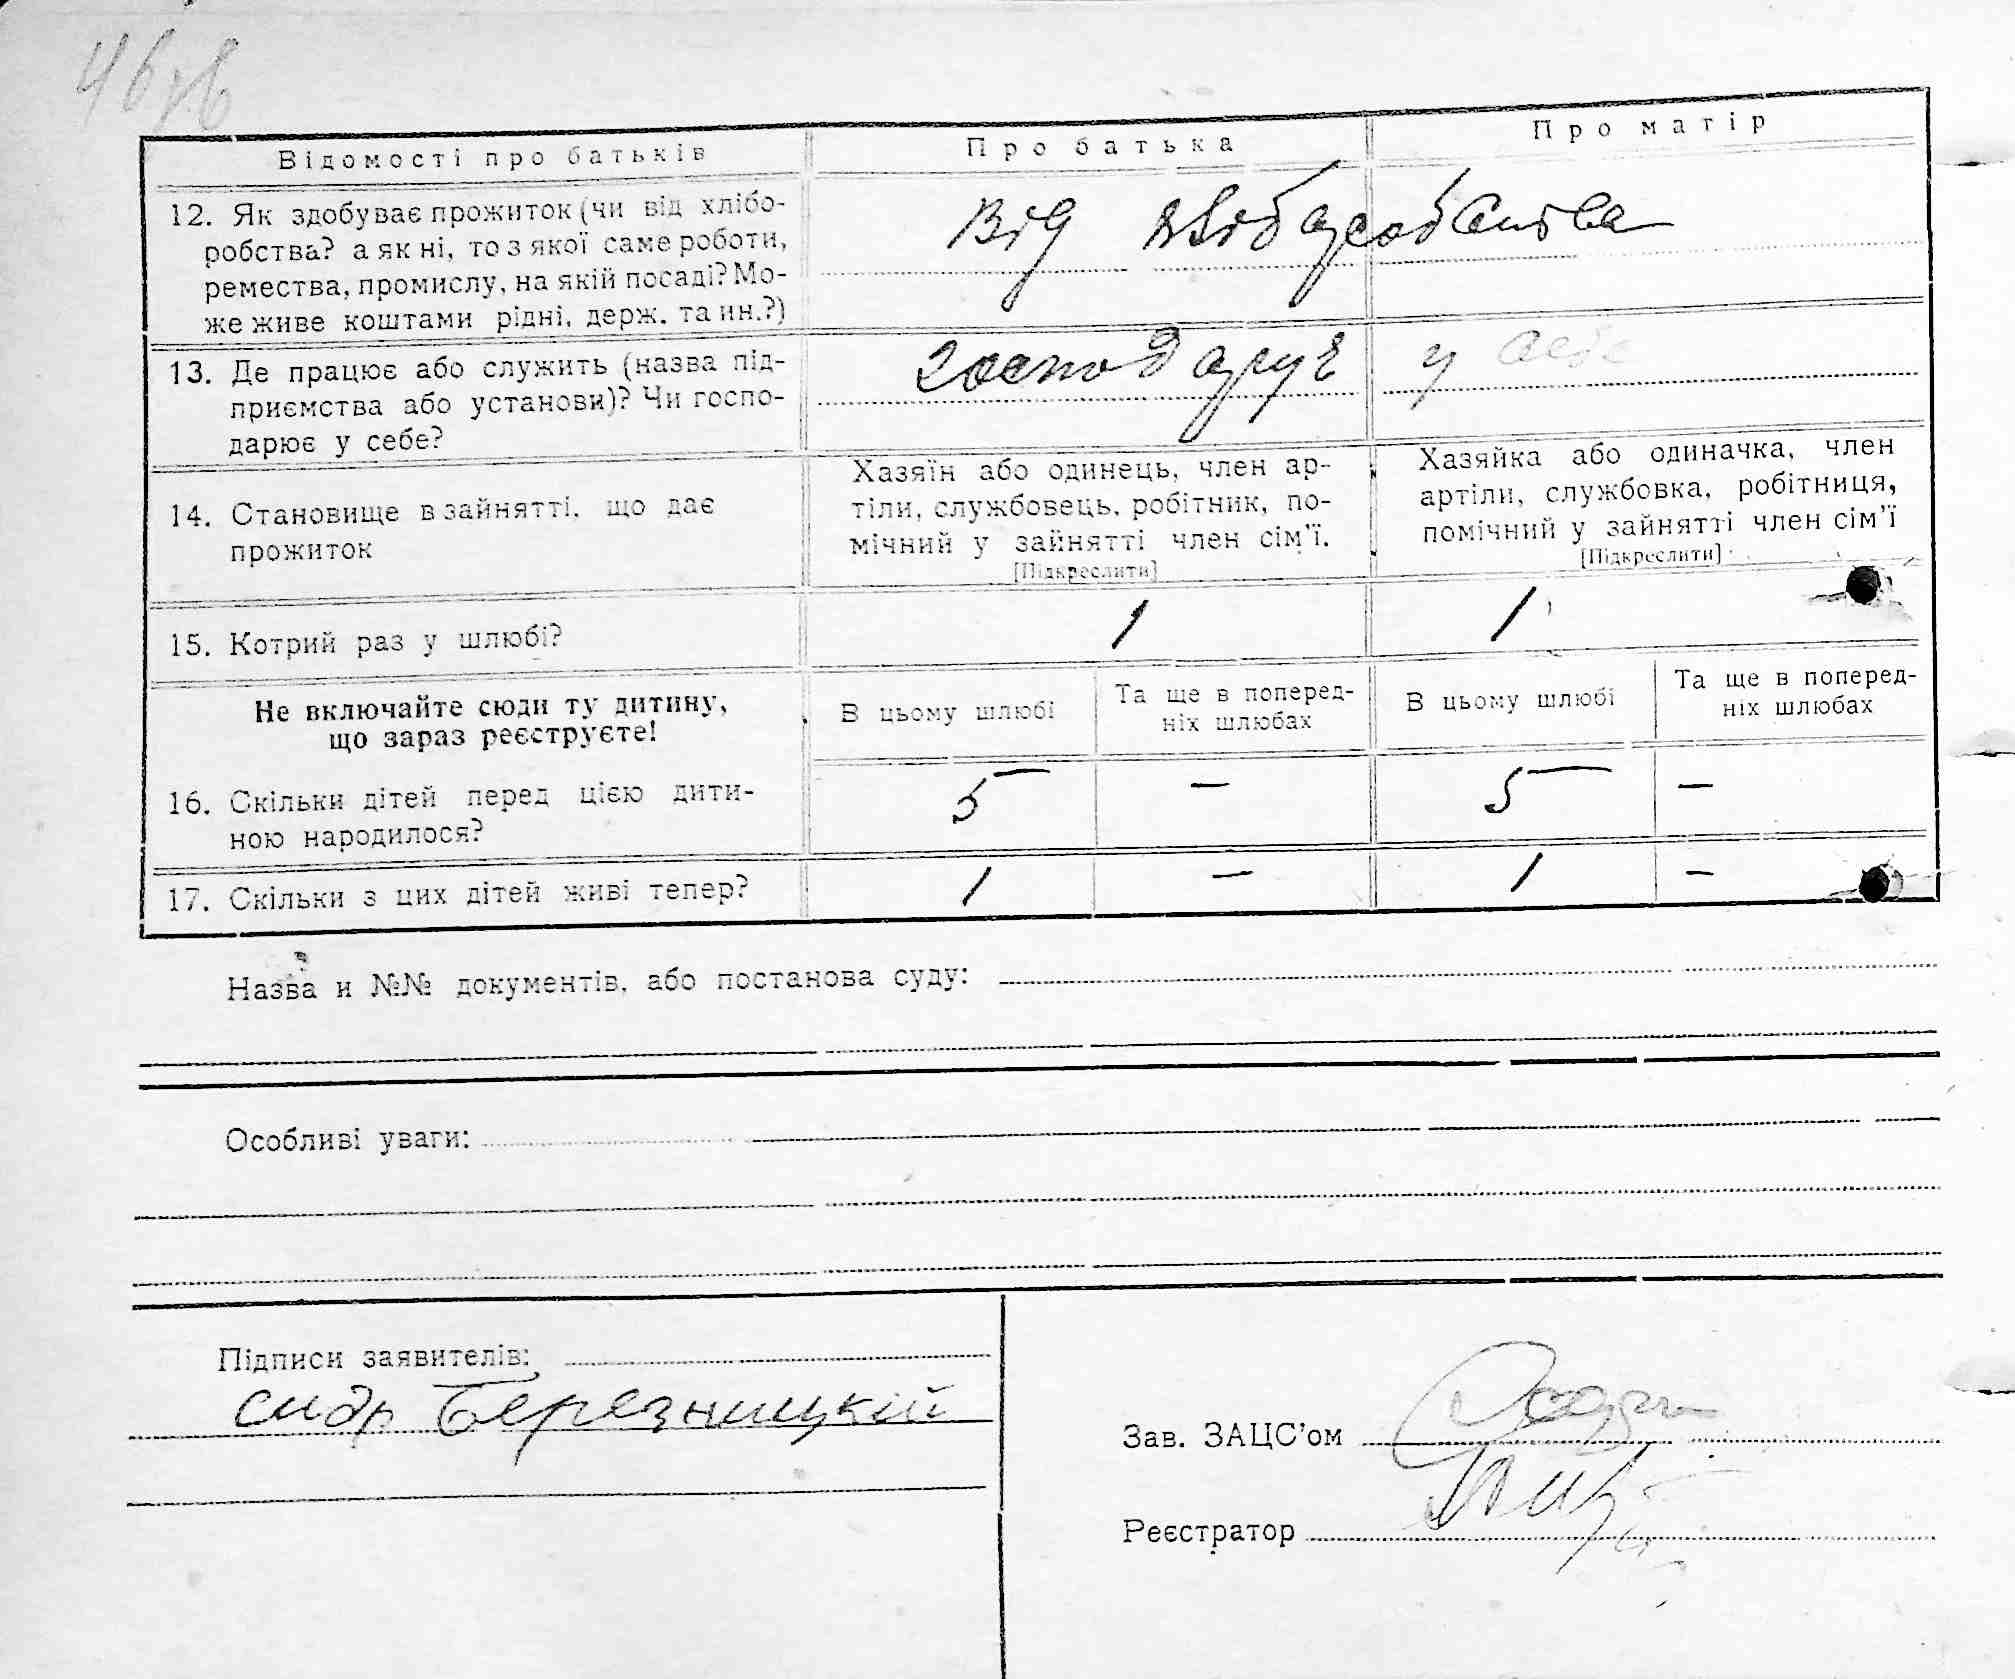 46зв
Відомості про батьків Про батька Про матір
12. Як здобуває прожиток (чи від хлібо-
робства? а як ні, то з якої саме роботи,
ремества, промислу, на якій посаді? Мо-
же живе коштами рідні, держ. та ин.?)
Від хлібаробства
13. Де працює або служить (назва під-
приємства або установи)? Чи госпо-
дарює у себе?
господарує у себе
14. Становище в зайнятті, що дає
прожиток
Хазяїн або одинець, член ар-
тіли, службовець, робітник, по-
мічний у зайнятті член сім'ї.
[Підкреслити]
Хазяйка або одиначка, член
артіли, службовка, робітниця,
помічний у зайнятті член сім'ї
[Підкреслити]
15. Котрий раз у шлюбі? 1 1
Не включайте сюди ту дитину,
що зараз реєструєте!
В цьому шлюбі
Та ще в поперед-
ніх шлюбах
В цьому шлюбі
Та ще в поперед-
ніх шлюбах
16. Скільки дітей перед цією дити-
ною народилося?
5 — 5 —
17. Скільки з цих дітей живі тепер? 1 — 1 —
Назва и №№ документів, або постанова суду:
Особливі уваги:
Підписи заявителів:
сидр Березницкій
Зав. ЗАЦС'ом
Реєстратор